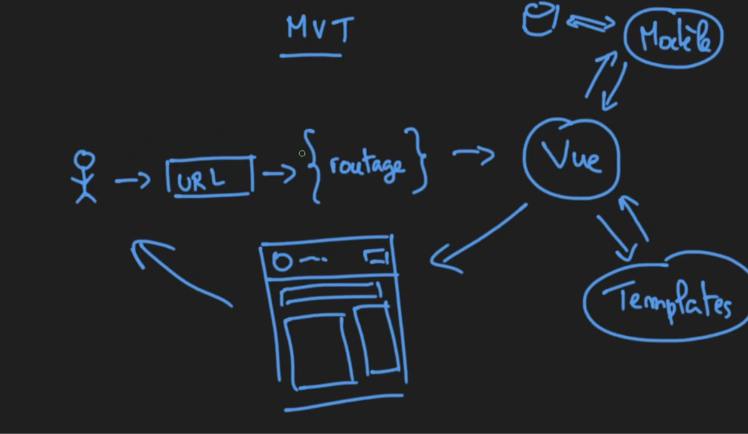 MVT
Modèle
URL
routage
Vue
Templates